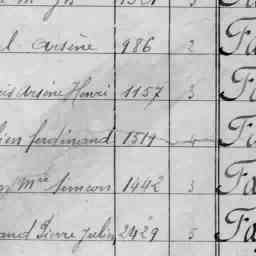 l Arsène 986 2 Fa
is Arsène Henri 1157 3 Fa
ien Ferdinand 1514 4 Fa
Simeon 1442 3 Fa
and Pierre Julien 2429 5 Fa